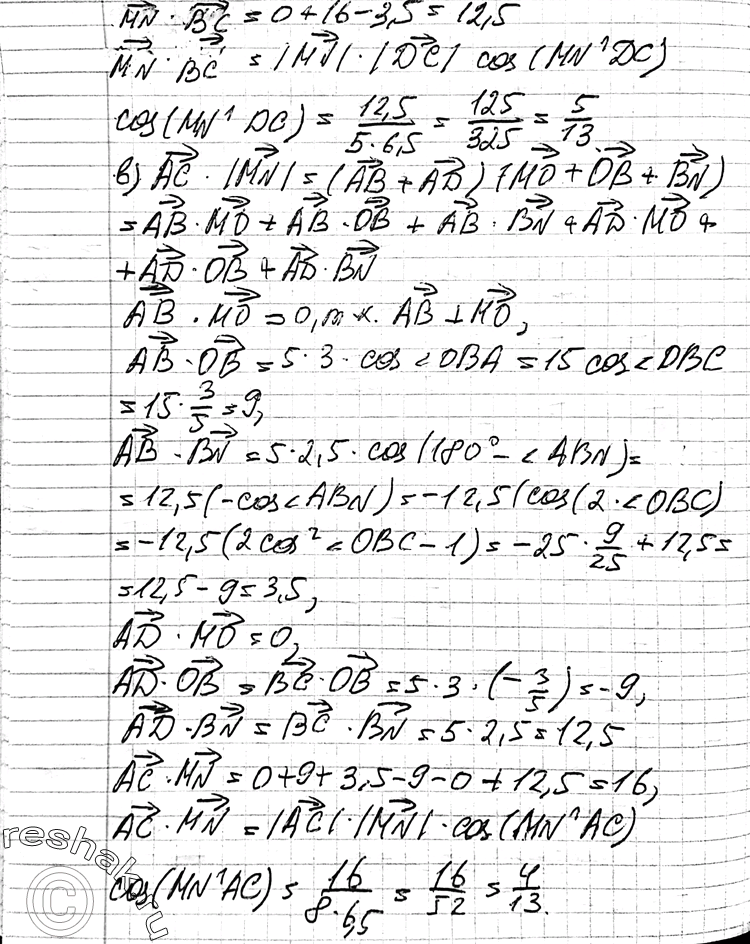 MN · BC = 0 + 16 - 3,5 = 12,5
MN · BC = |MN| · |DC| cos(MN^DC)
cos(MN^DC) = 12,5/(5·6,5) = 125/325 = 5/13.
в) AC · |MN| = (AB + AD)(MO + OB + BN)
= AB · MO + AB · OB + AB · BN + AD · MO +
+ AD · OB + AD · BN
AB · MO = 0, т.к. AB ⊥ MO,
AB · OB = 5 · 3 · cos<OBA = 15 cos<OBC
= 15 · 3/5 = 9,
AB · BN = 5 · 2,5 · cos(180° - <ABN) =
= 12,5(-cos<ABN) = -12,5(cos(2·<OBC)
= -12,5(2cos²<OBC - 1) = -25 · 9/25 + 12,5 =
= 12,5 - 9 = 3,5,
AD · MO = 0,
AD · OB = BC · OB = 5 · 3 · (-3/5) = -9,
AD · BN = BC · BN = 5 · 2,5 = 12,5
AC · MN = 0 + 9 + 3,5 - 9 - 0 + 12,5 = 16,
AC · MN = |AC| · |MN| · cos(MN^AC)
cos(MN^AC) = 16/(8·6,5) = 16/52 = 4/13.
reshak.ru
©